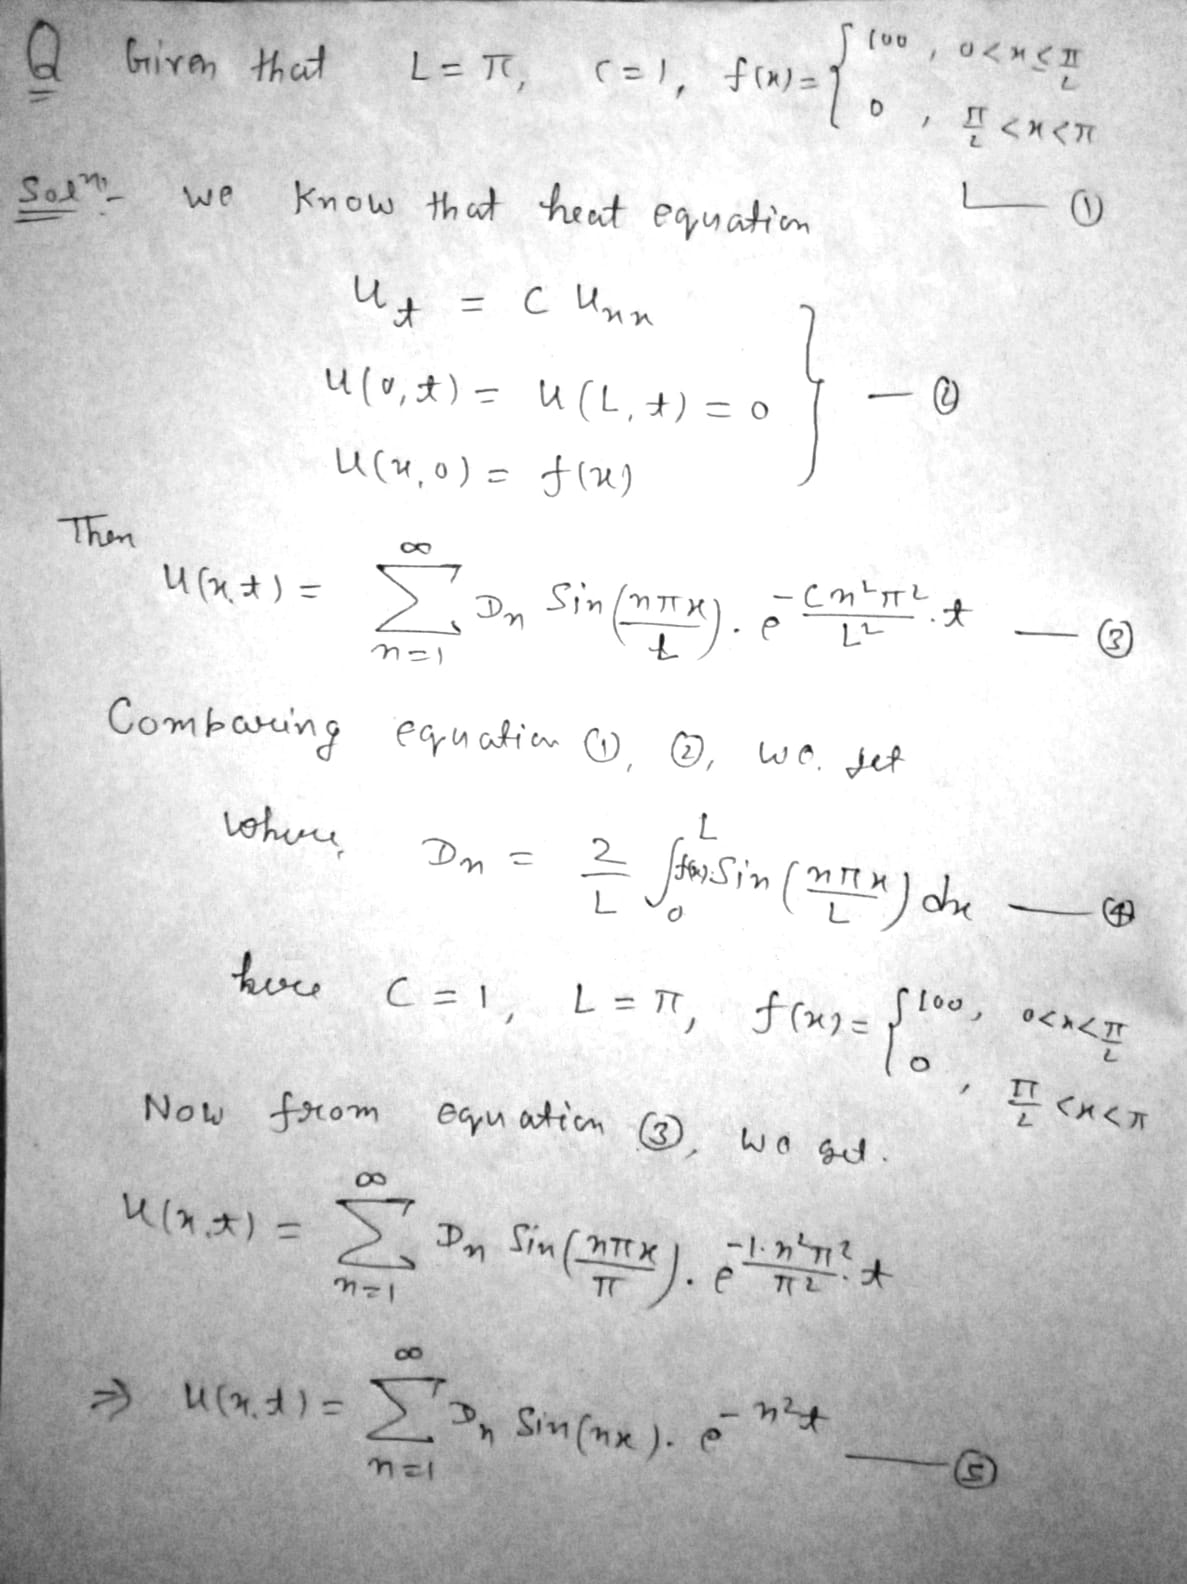 Q Given that L = π, C = 1, f(x) = { 100 , 0 < x ≤ π/2
0 , π/2 < x < π
— ①
Solⁿ:- we know that heat equation
u_t = C u_xx
u(0,t) = u(L,t) = 0 } — ②
u(x,0) = f(x)
Then
u(x,t) = ∑_{n=1}^{∞} D_n Sin(nπx/L) . e^{-Cn²π²/L² . t} — ③
Comparing equation ①, ②, we get
where, D_n = 2/L ∫_0^L f(x).Sin(nπx/L) dx — ④
here C = 1, L = π, f(x) = { 100, 0 < x < π/2
0 , π/2 < x < π
Now from equation ③, we get.
u(x,t) = ∑_{n=1}^{∞} D_n Sin(nπx/π) . e^{-1.n²π²/π² . t}
⇒ u(x,t) = ∑_{n=1}^{∞} D_n Sin(nx). e^{-n²t} — ⑤